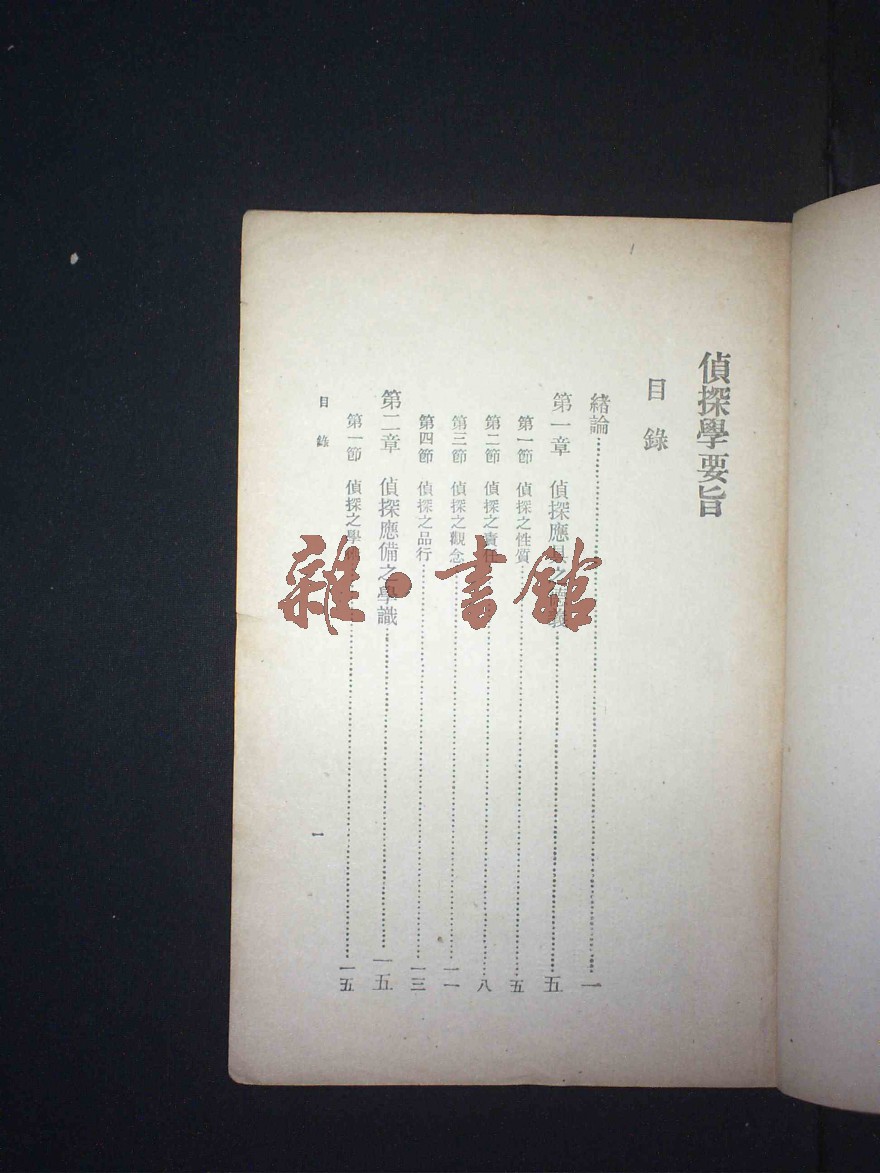 偵探學要旨
目錄
緒論 一
第一章 偵探應具之 五
第一節 偵探之性質 五
第二節 偵探之責任 八
第三節 偵探之觀念 一一
第四節 偵探之品行 一三
第二章 偵探應備之學識 一五
第一節 偵探之學 一五
目錄 一
雜·書館